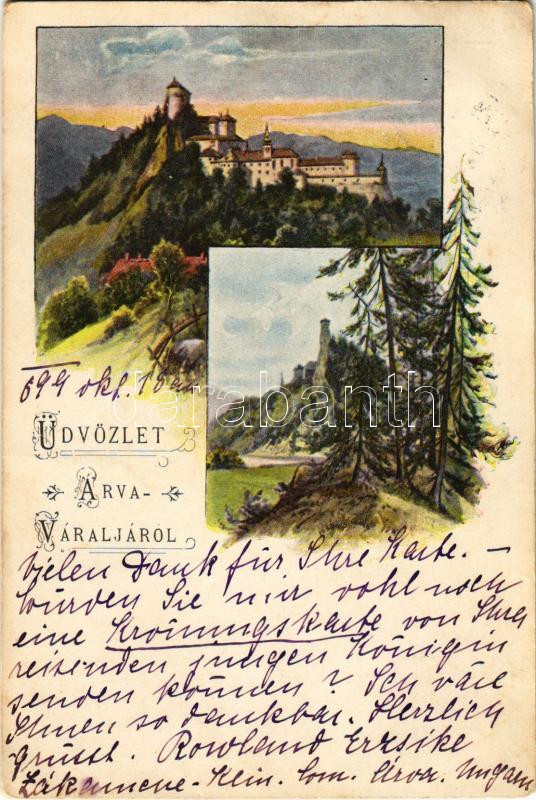 899 okt. 18
darabanth
ÜDVÖZLET
ÁRVA-
VÁRALJÁRÓL
Vielen Dank für Ihre Karte. –
Würden Sie mir wohl noch
eine Krönungskarte von Ihrer
reisenden jungen Königin
senden können? Ich wäre
Ihnen so dankbar. Herzlich
grüsst. Rowland Erzsike
Zákamene-Klin. Com. Árva. Ungarn